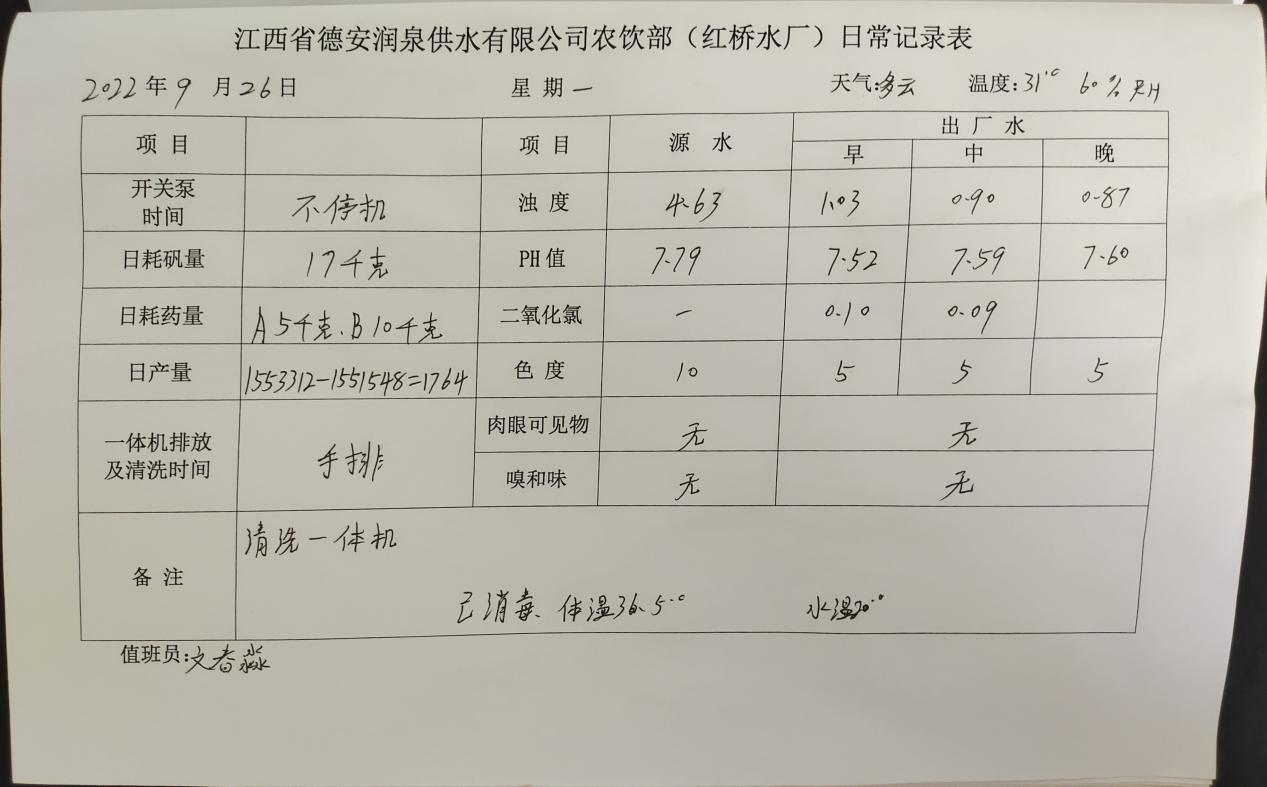 江西省德安润泉供水有限公司农饮部（红桥水厂）日常记录表
2022年9月26日 星期一 天气:多云 温度:31℃ 60%RH
项目 项目 源水 出厂水
早 中 晚
开关泵时间 不停机 浊度 4.63 1.03 0.90 0.87
日耗矾量 17千克 PH值 7.79 7.52 7.59 7.60
日耗药量 A5千克、B10千克 二氧化氯 一 0.10 0.09
日产量 1553312-1551548=1764 色度 10 5 5 5
一体机排放及清洗时间 手排 肉眼可见物 无 无
嗅和味 无 无
备注 清洗一体机
已消毒、体温36.5℃ 水温20℃
值班员:文春淼